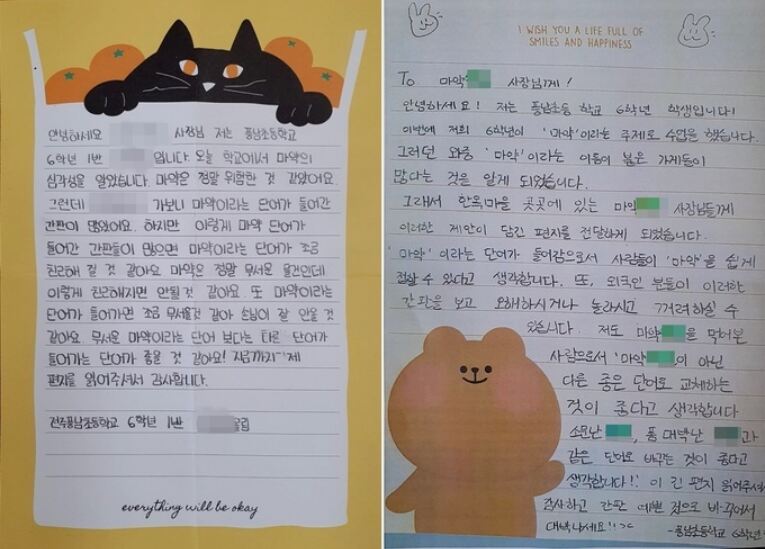 안녕하세요 사장님 저는 풍남초등학교
6학년 1반 입니다. 오늘 학교에서 마약의
심각성을 알았습니다. 마약은 정말 위험한 것 같았어요.
그런데 가보니 마약이라는 단어가 들어간
간판이 많았어요. 하지만 이렇게 마약 단어가
들어간 간판들이 많으면 마약이라는 단어가 조금
친근해 질 것 같아요 마약은 정말 무서운 물건인데
이렇게 친근해지면 안될 것 같아요. 또 마약이라는
단어가 들어가면 조금 무서울것 같아 손님이 잘 안올 것
같아요. 무서운 마약이라는 단어 보다는 다른 단어가
들어가는 단어가 좋을 것 같아요! 지금까지 제
편지를 읽어주셔서 감사합니다.
전주풍남초등학교 6학년 1반 올림
everything will be okay
I WISH YOU A LIFE FULL OF
SMILES AND HAPPINESS
To 마약 사장님께!
안녕하세요! 저는 풍남초등 학교 6학년 학생입니다!
이번에 저희 6학년이 '마약'이라는 주제로 수업을 했습니다.
그러던 와중 '마약'이라는 이름이 붙은 가게들이
많다는 것을 알게 되었습니다.
그래서 한옥마을 곳곳에 있는 마약 사장님들께
이러한 제안이 담긴 편지를 전달하게 되었습니다.
'마약'이라는 단어가 들어감으로서 사람들이 '마약'을 쉽게
접할 수 있다고 생각합니다. 또, 외국인 분들이 이러한
간판을 보고 오해하시거나 놀라시고 꺼려하실 수
있습니다. 저도 마약 을 먹어본
사람으로서 '마약 이 아닌
다른 좋은 단어로 교체하는
것이 좋다고 생각합니다
소문난 , 풍 대박난 과
같은 단어로 바꾸는 것이 좋다고
생각합니다! 이 긴 편지 읽어주셔서
감사하고 간판 예쁜 것으로 바꾸어서
대박나세요!! ><
-풍남초등학교 6학년